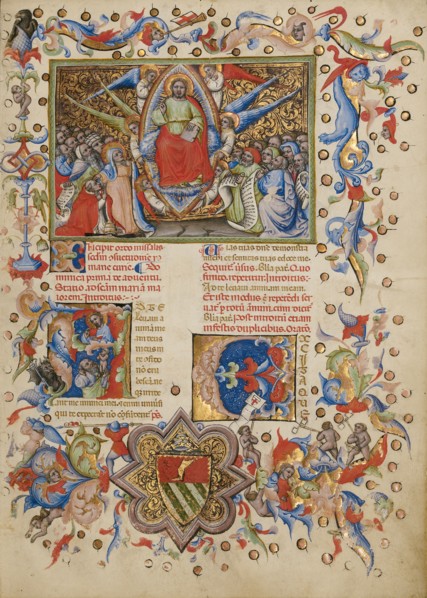 Incipit ordo missalis
secundum consuetudinem ro
mane curie. Do
minica prima de adventu.
Statio ad sanctam mariam ma
iorem. Introitus.
AD TE
levavi a
nimam me
am deus
meus in
te confido
non eru
bescam ne
que irride
ant me inimici mei etenim universi
qui te expectant non confundentur. ps
Vias tuas domine demonstra
michi et semitas tuas edoce me.
Sequitur versus. Gloria patri. Quo
finito repetitur Introitus.
Ad te levavi animam meam.
Et iste modus repetendi ser
vatur per totum annum, cum dicitur
Gloria patri. Post introitum etiam
in festis duplicibus. Oratio.
EXCITA QUE